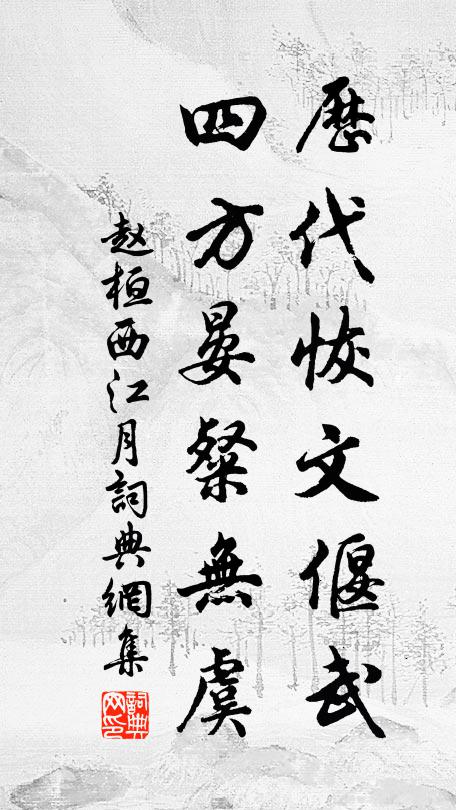 歷代恢文偃武
四方晏粲無虞
赵桓西江月詞典網集
詞典网印